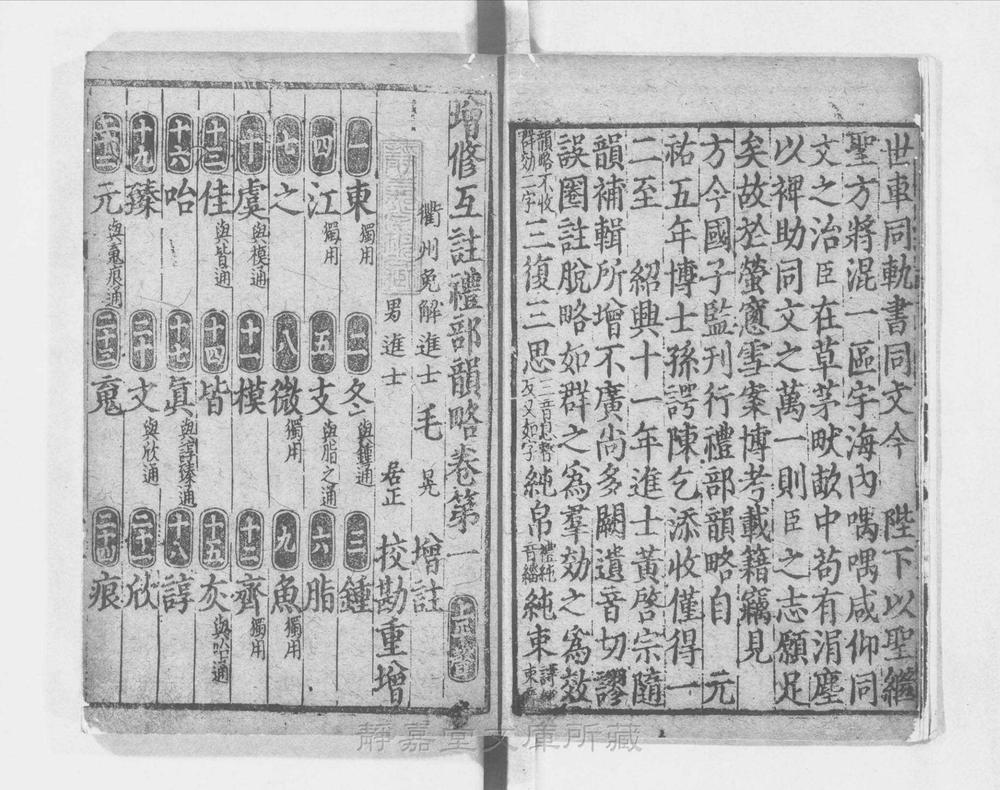 世車同軌書同文今　陛下以聖繼
聖方將混一區宇海內喁喁咸仰同
文之治臣在草茅畎畝中苟有涓塵
以裨助同文之萬一則臣之志願足
矣故於螢窻雪案博考載籍竊見
方今國子監刊行禮部韻略自　元
祐五年博士孫諤陳乞添收僅得一
二至　紹興十一年進士黃啓宗隨
韻補輯所增不廣尚多闕遺音切謬
誤圈註脫略如群之為羣効之為效
韻略不收群効二字三復三思三音息暫反又如字純帛禮純音緇純束
增修互註禮部韻略卷第一
衢州免解進士　毛　晃　增註
男進士　居正　校勘重增
一東獨用　二冬與鍾通　三鍾
四江獨用　五支與脂之通　六脂
七之　八微獨用　九魚獨用
十虞與模通　十一模　十二齊獨用
十三佳與皆通　十四皆　十五灰與咍通
十六咍　十七眞與諄臻通　十八諄
十九臻　二十文與欣通　二十一欣
二十二元與䰟痕通　二十三䰟　二十四痕
靜嘉堂文庫所藏